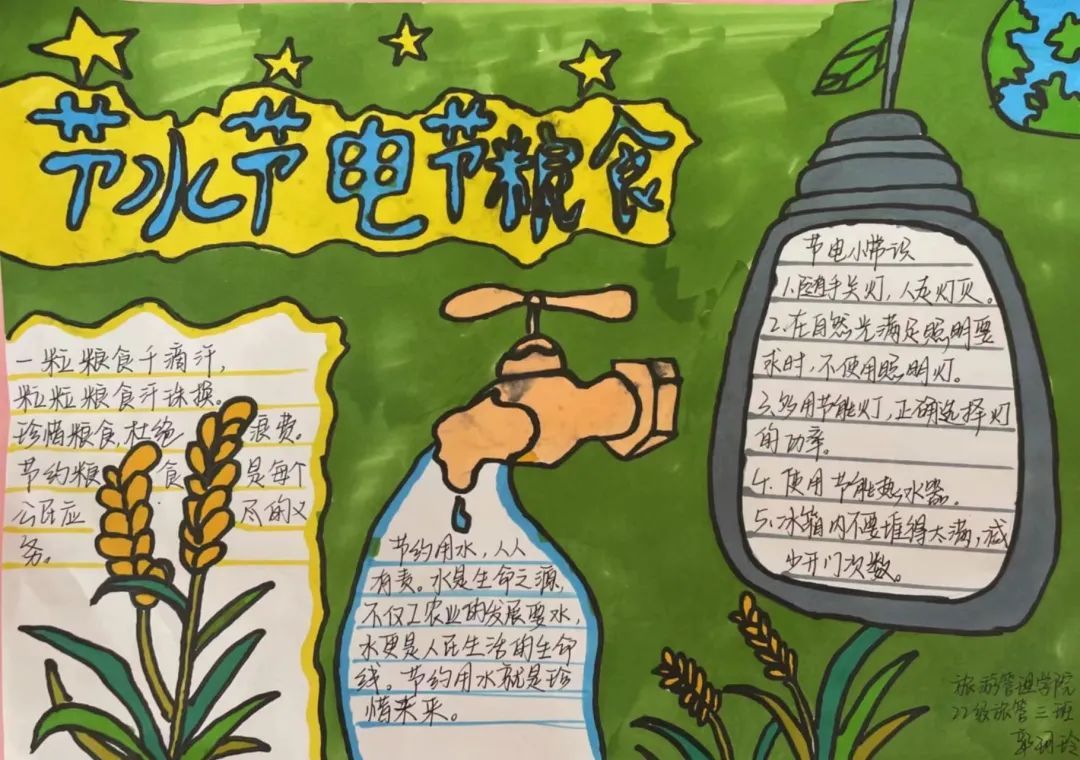 节水节电节粮食
一粒粮食千滴汗，
粒粒粮食汗珠换。
珍惜粮食，杜绝浪费。
节约粮食是每个
公民应尽的义
务。
节约用水，人人
有责。水是生命之源，
不仅工农业的发展要水，
水更是人民生活的生命
线。节约用水就是珍
惜未来。
节电小常识
1.随手关灯，人走灯灭。
2.在自然光满足照明要
求时，不使用照明灯。
3.多用节能灯，正确选择灯
的功率。
4.使用节能热水器。
5.冰箱内不要堆得太满，减
少开门次数。
旅游管理学院
22级旅管三班
郭玲